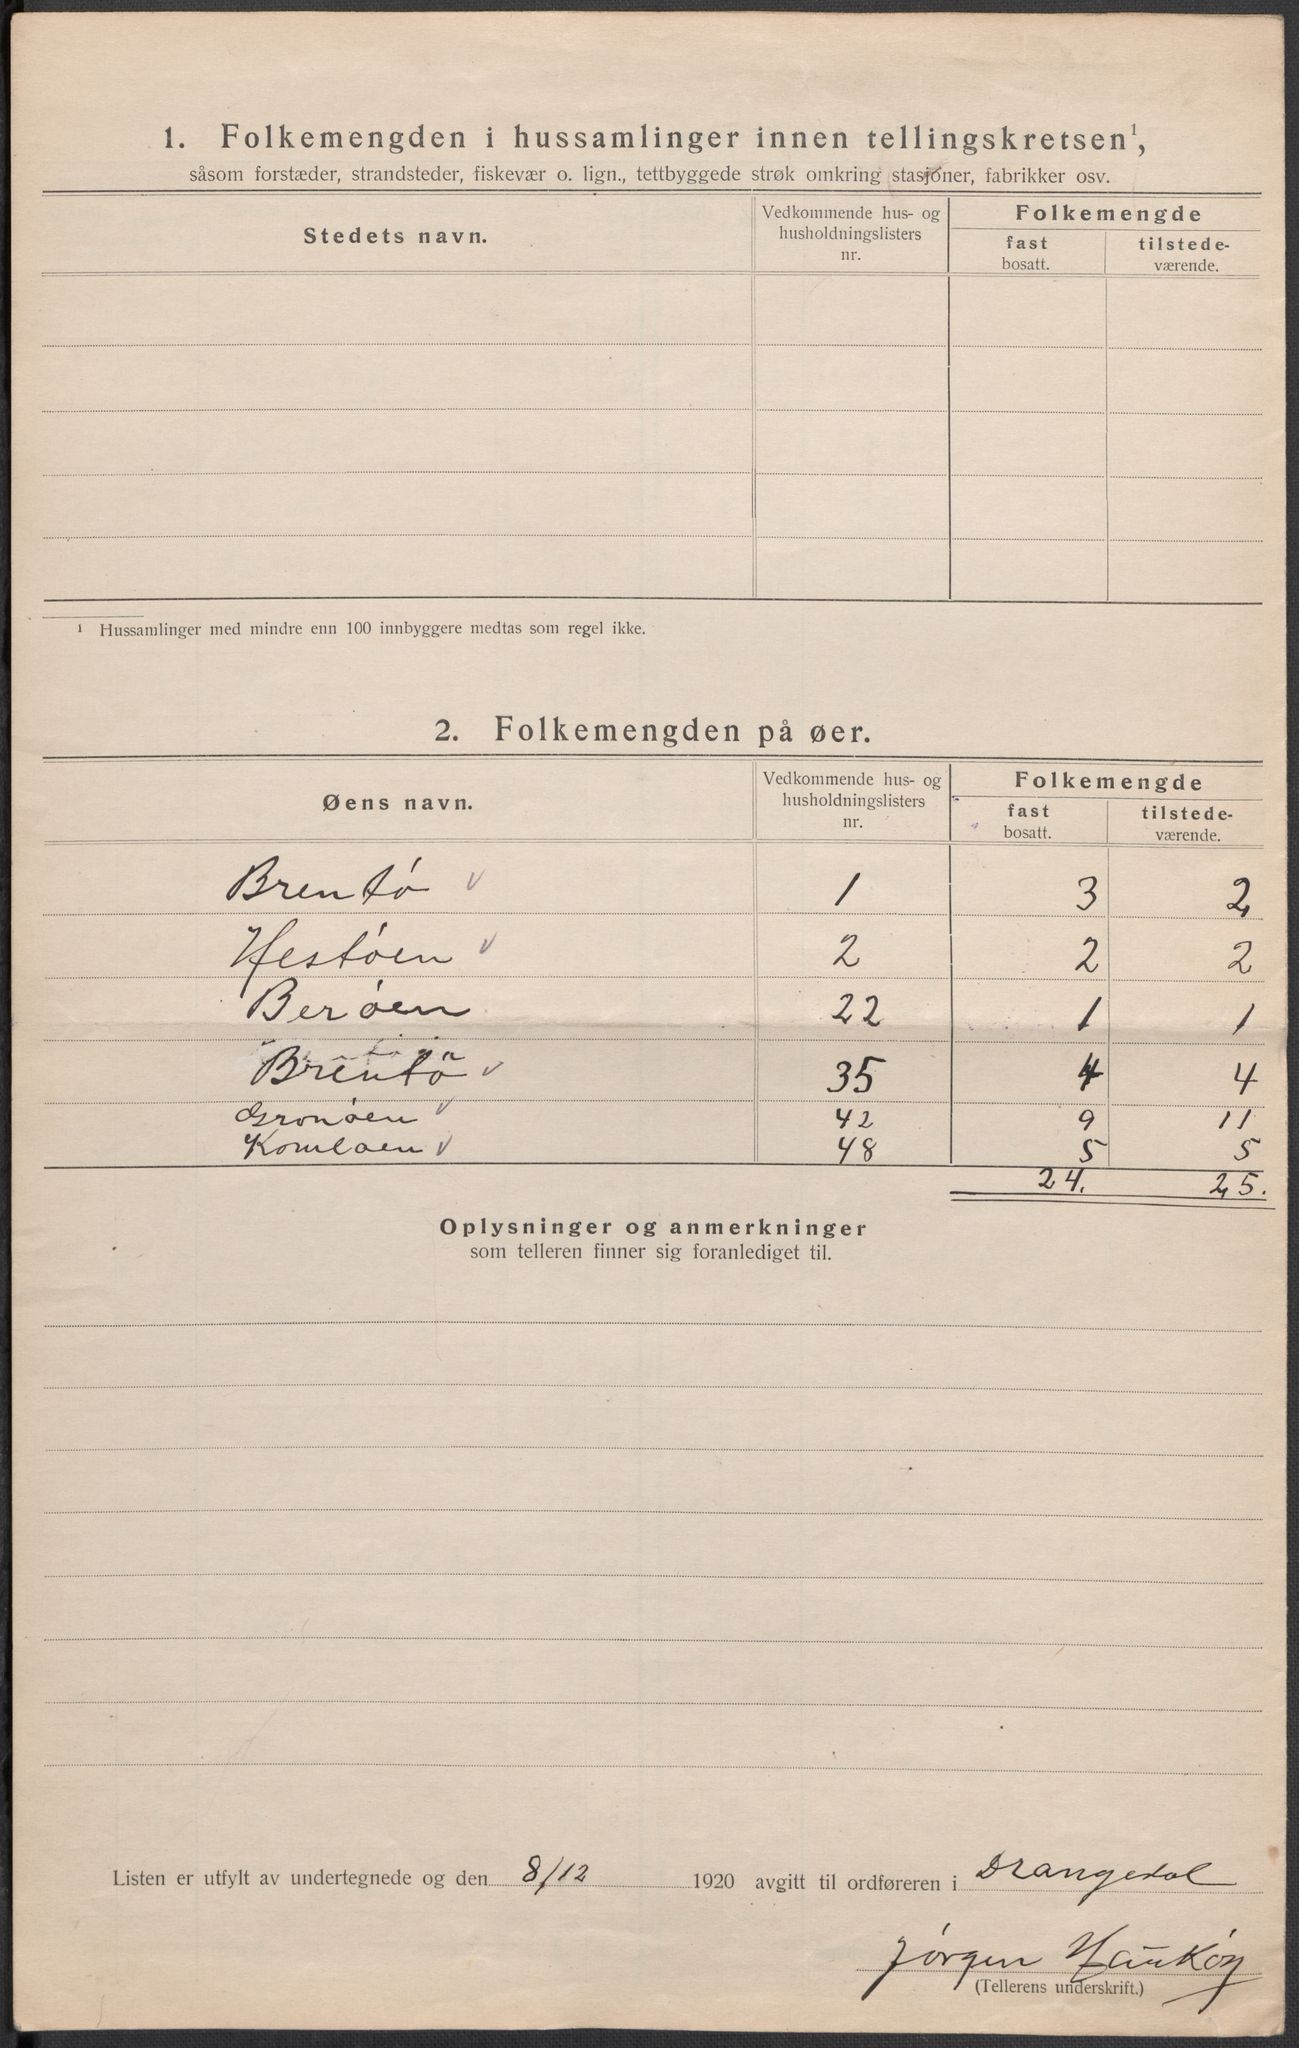 1. Folkemengden i hussamlinger innen tellingskretsen¹,
såsom forstæder, strandsteder, fiskevær o. lign., tettbyggede strøk omkring stasjoner, fabrikker osv.
Stedets navn.
Vedkommende hus- og
husholdningslisters
nr.
Folkemengde
fast
bosatt.
tilstede-
værende.
¹ Hussamlinger med mindre enn 100 innbyggere medtas som regel ikke.
2. Folkemengden på øer.
Øens navn.
Vedkommende hus- og
husholdningslisters
nr.
Folkemengde
fast
bosatt.
tilstede-
værende.
Brentø v 1 3 2
Hestøen v 2 2 2
Berøen 22 1 1
Brentø v 35 4 4
Gronøen v 42 9 11
Komløen v 48 5 5
24. 25.
Oplysninger og anmerkninger
som telleren finner sig foranlediget til.
Listen er utfylt av undertegnede og den 8/12 1920 avgitt til ordføreren i Drangedal
Jørgen
(Tellerens underskrift.)